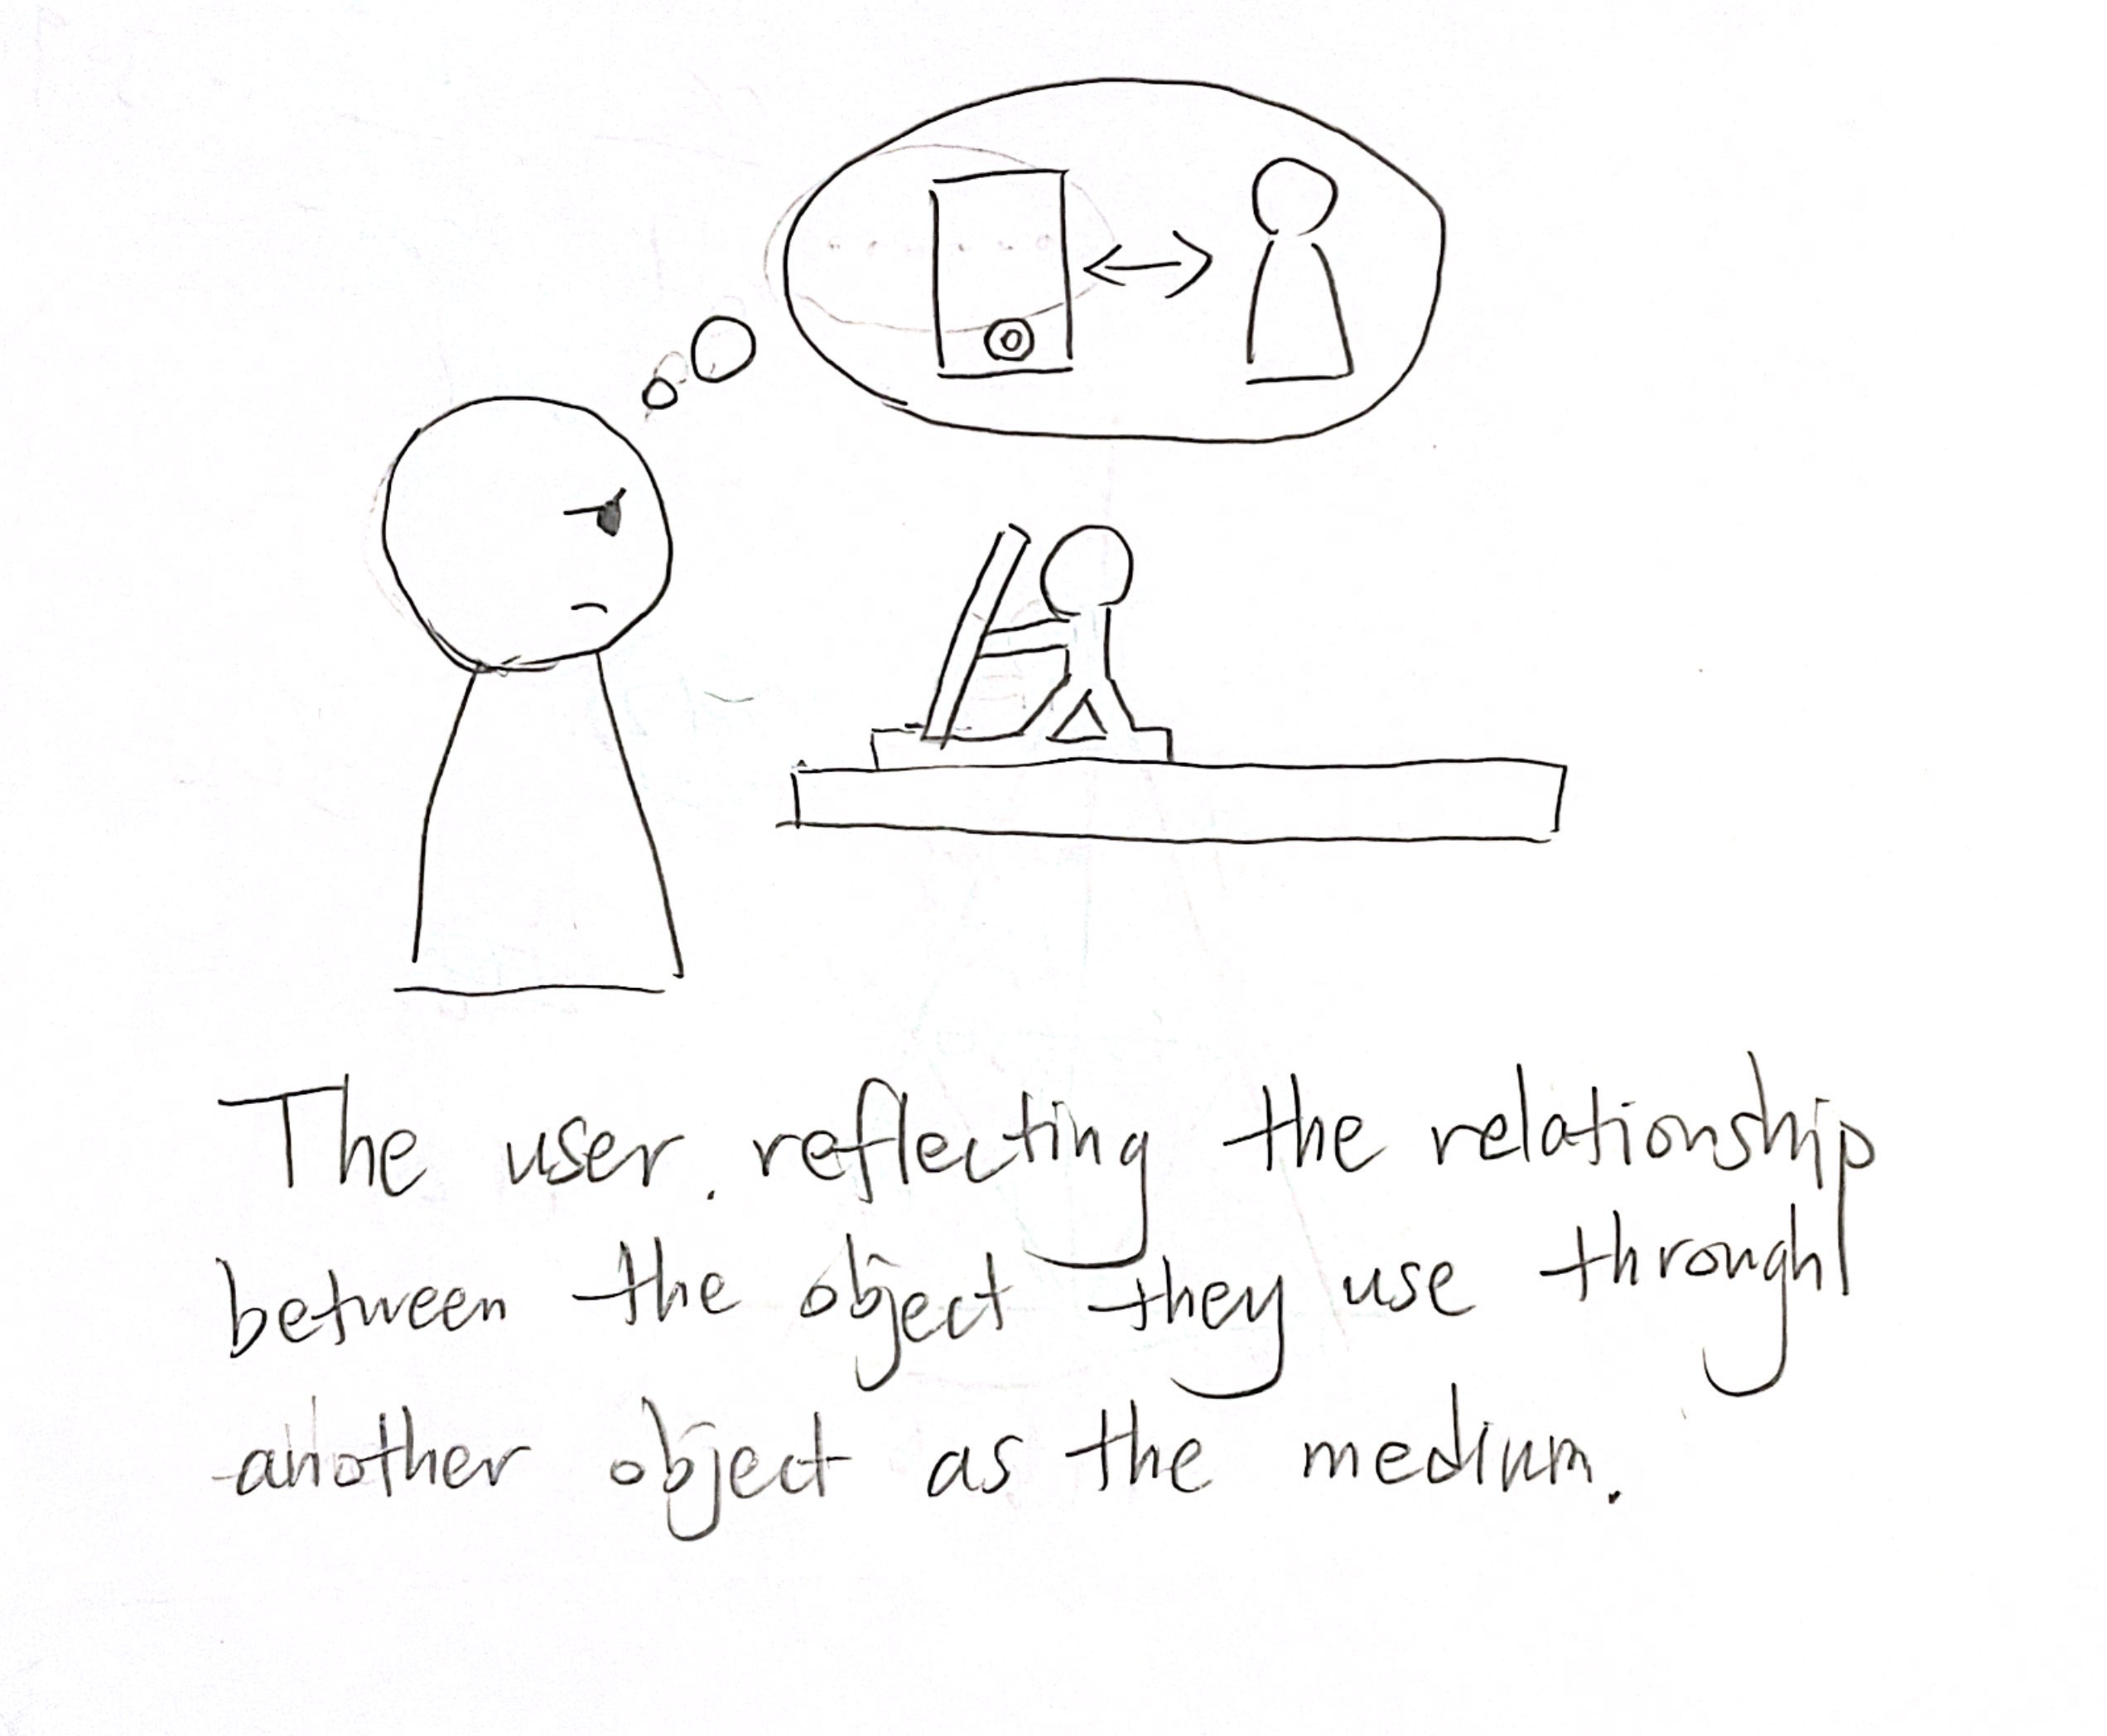 The user. reflecting the relationship
between the object they use through
another object as the medium.